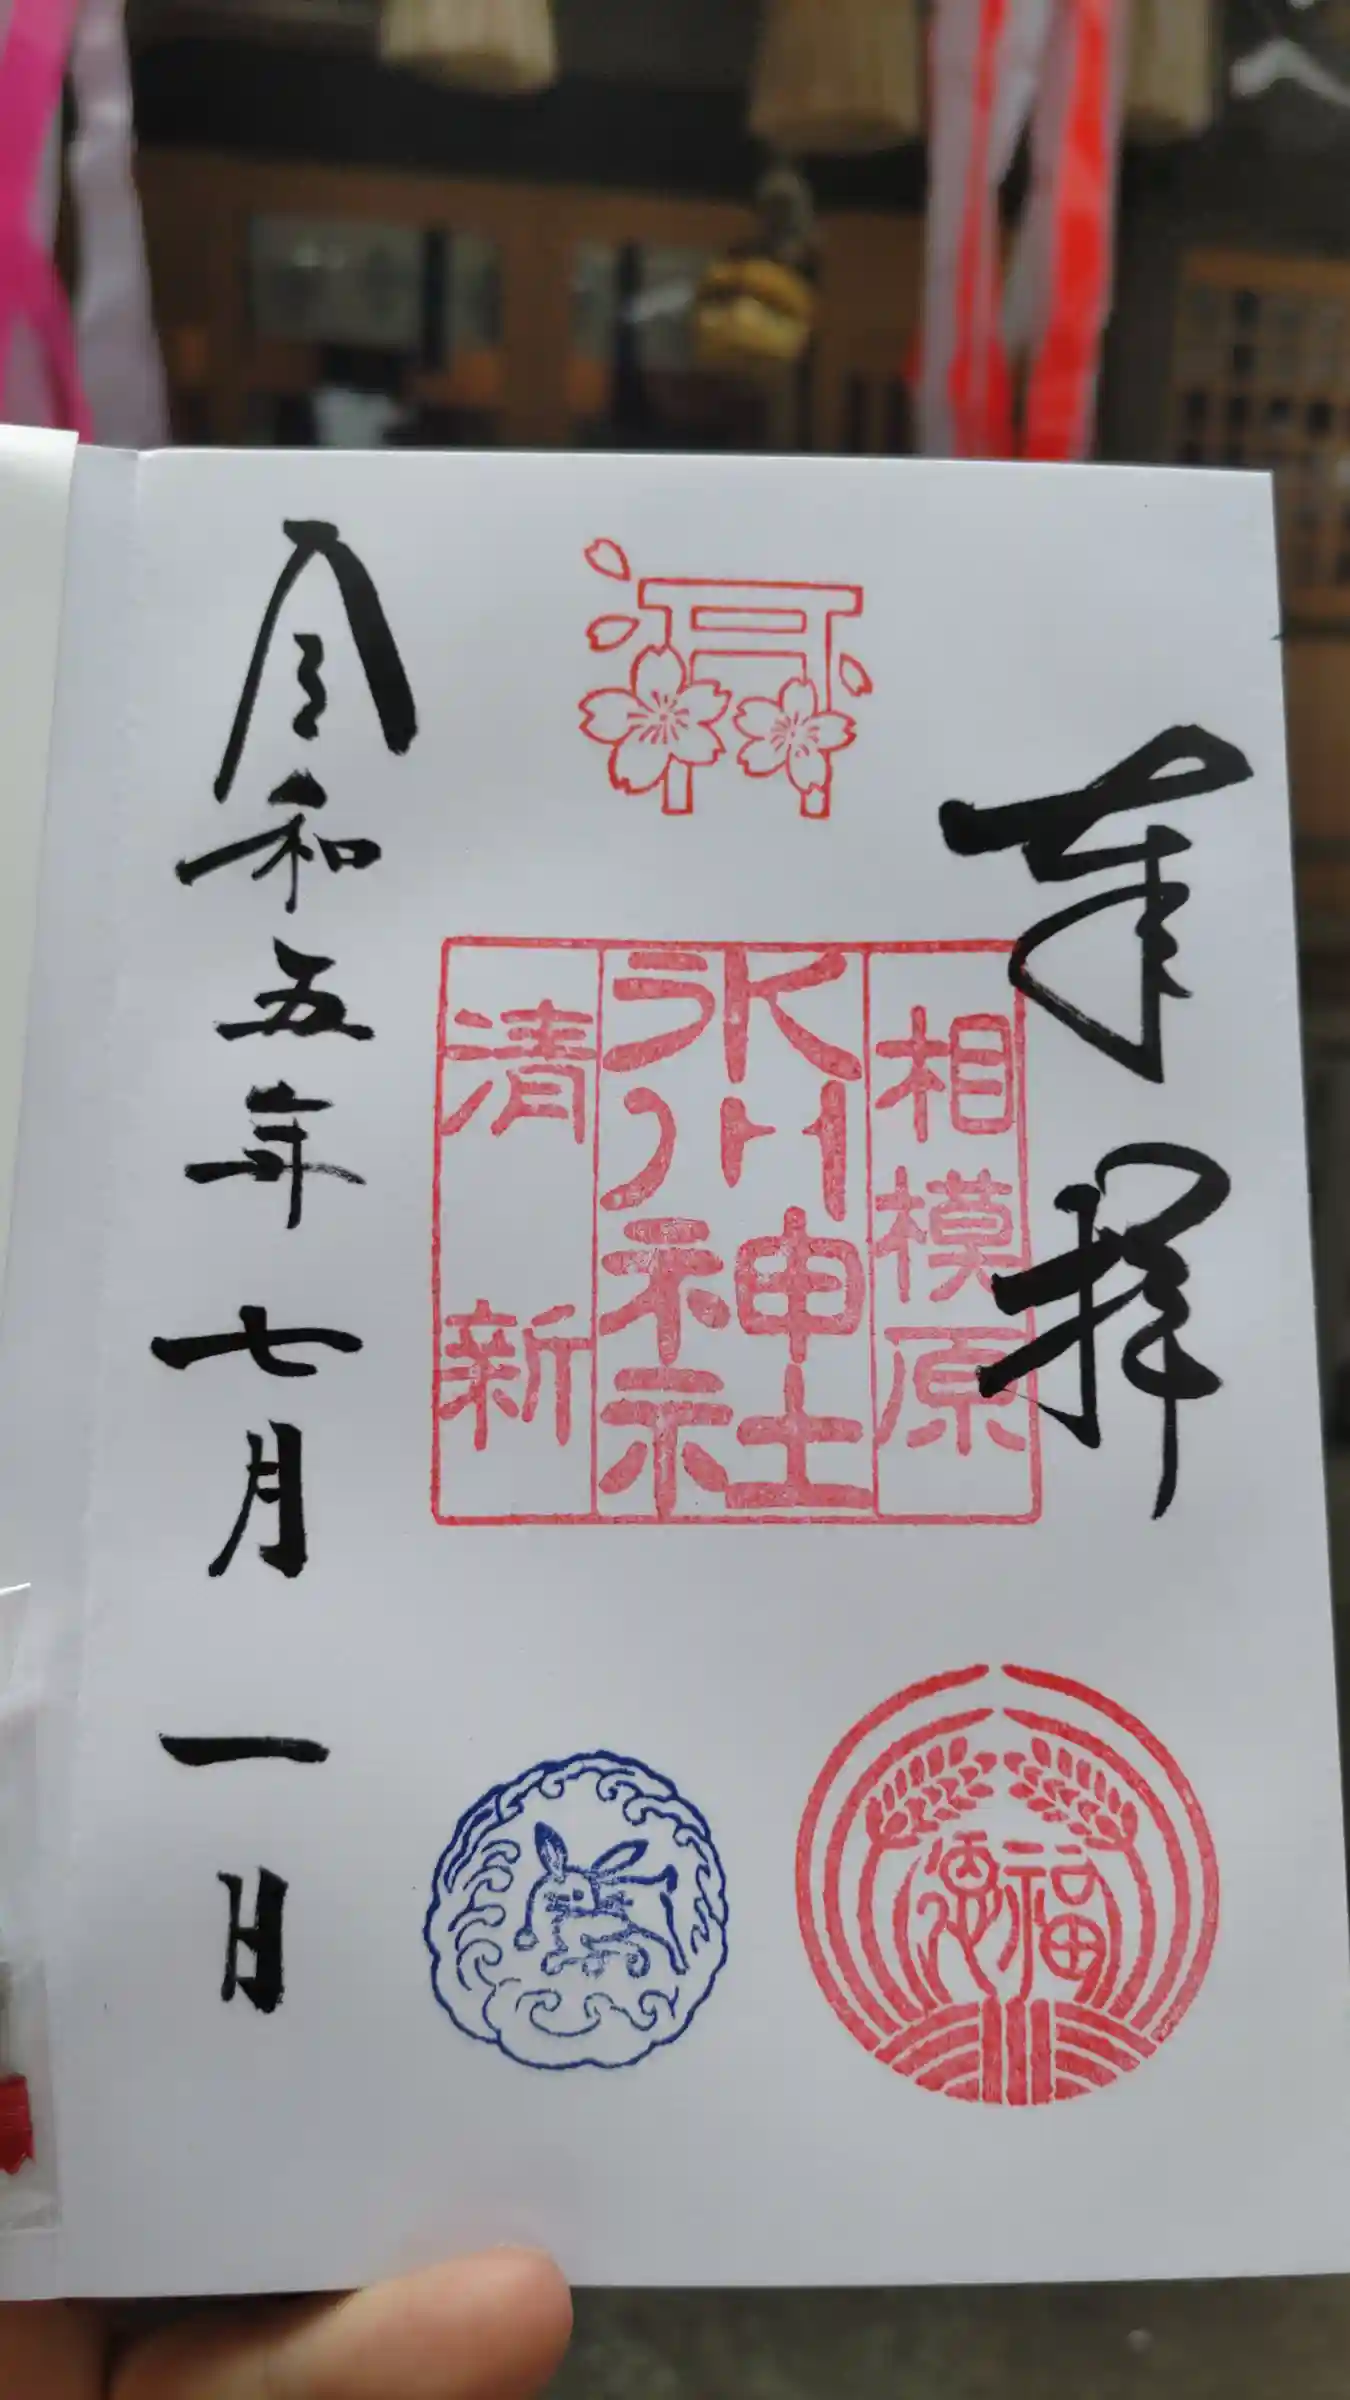 奉拝
相模原
氷川神社
清新
福徳
令和五年七月一日